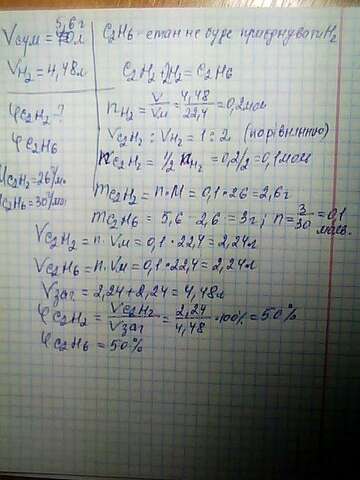 5,6г
Vсум = 10л
VH2 = 4,48л
φC2H2 - ?
φC2H6
MC2H2=26г/м.
MC2H6=30г/мол
C2H6 - етан не буде приєднувати H2
C2H2+2H2=C2H6
nH2 = V/Vм = 4,48/22,4 = 0,2мол
VC2H2 : VH2 = 1 : 2 (порівнянню)
nC2H2 = 1/2 nH2 = 0,2/2 = 0,1мол
mC2H2 = n·M = 0,1·26 = 2,6г
mC2H6 = 5,6 - 2,6 = 3г; n = 3/30 = 0,1 моль.
VC2H2 = n·Vм = 0,1·22,4 = 2,24л
VC2H6 = n·Vм = 0,1·22,4 = 2,24л
Vзаг = 2,24+2,24 = 4,48л
φC2H2 = VC2H2/Vзаг = 2,24/4,48 ·100% = 50%
φC2H6 = 50%